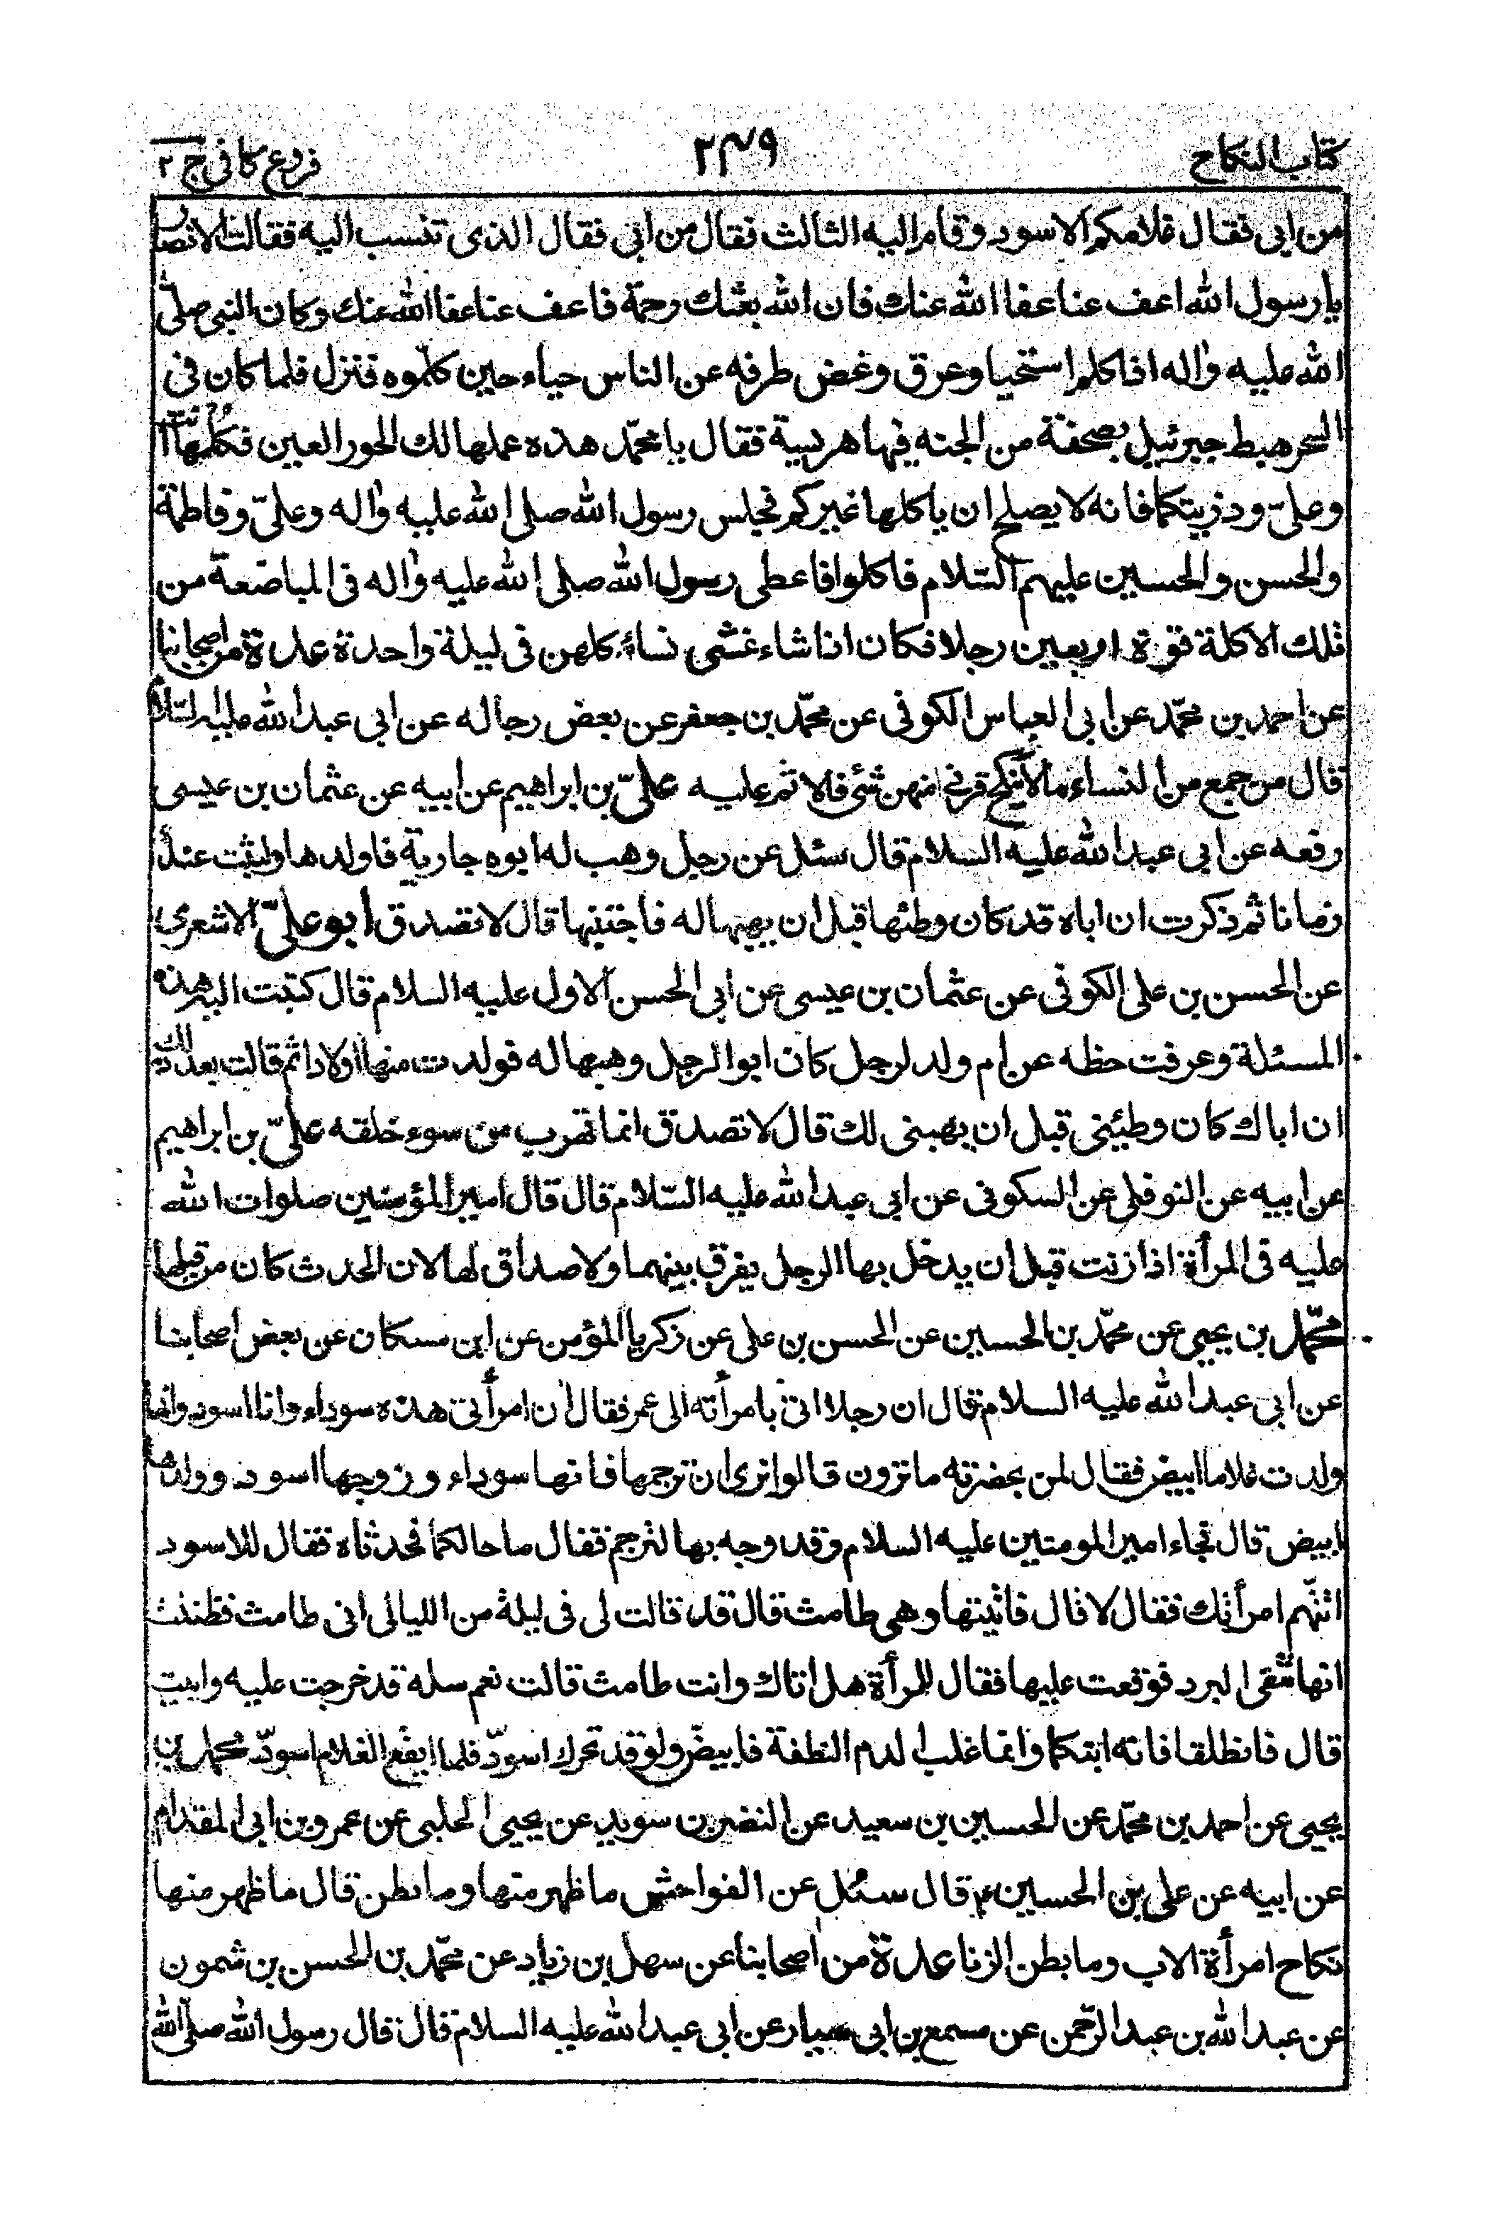 كتاب النكاح ٢٣٩ فروع كافى ج ٢
من ابى فقال غلامكم الاسود وقام اليه الثالث فقال من ابى فقال الذى تنسب اليه فقالت الانصار
يا رسول الله اعف عنا عفا الله عنك فان الله بعثك رحمة فاعف عنا عفا الله عنك وكان النبى صلى
الله عليه واله اذا كلم استحيا وعرق وغض طرفه عن الناس حياء حين كلموه فنزل فلما كان فى
السحر هبط جبرئيل بصحفة من الجنه فيها هريسة فقال يا محمّد هذه عملها لك الحور العين فكلها انت
وعلىّ وذريتكما فانه لا يصلح ان ياكلها غيركم فجلس رسول الله صلى الله عليه واله وعلىّ وفاطمة
والحسن والحسين عليهم السّلام فاكلوا فاعطى رسول الله صلى الله عليه واله فى المباضعة من
تلك الاكلة قوة اربعين رجلا فكان اذا شاء غشى نساءه كلهن فى ليلة واحدة عدة من اصحابنا
عن احمد بن محمّد عن ابى العباس الكوفى عن محمّد بن جعفر عن بعض رجاله عن ابى عبد الله عليه السّلام
قال من جمع من النساء ما لا ينكح فزنى منهن شئ فالاثم عليه علىّ بن ابراهيم عن ابيه عن عثمان بن عيسى
رفعه عن ابى عبد الله عليه السلام قال سئل عن رجل وهب له ابوه جارية فاولدها ولبثت عنده
زمانا ثم ذكرت ان اباه قد كان وطئها قبل ان يهبها له فاجتنبها قال لا تصدق ابو علىّ الاشعرى
عن الحسن بن على الكوفى عن عثمان بن عيسى عن ابى الحسن الاول عليه السلام قال كتبت اليه هذه
المسئلة وعرفت خطه عن ام ولد لرجل كان ابو الرجل وهبها له فولدت منها اولادا ثم قالت بعد ذلك
ان اباك كان وطيئنى قبل ان يهبنى لك قال لا تصدق انما تهرب من سوء خلقه علىّ بن ابراهيم
عن ابيه عن النوفلى عن السكونى عن ابى عبد الله عليه السّلام قال قال امير المؤمنين صلوات الله
عليه فى المرأة اذا زنت قبل ان يدخل بها الرجل يفرق بينهما ولا صداق لها لان الحدث كان من قبلها
محمّد بن يحيى عن محمّد بن الحسين عن الحسن بن على عن زكريا المؤمن عن ابن مسكان عن بعض اصحابنا
عن ابى عبد الله عليه السلام قال ان رجلا اتى بامرأته الى عمر فقال ان امرأتى هذه سوداء وانا اسود وانها
ولدت غلاما ابيض فقال لمن بحضرته ما ترون قالوا نرى ان ترجمها فانها سوداء وزوجها اسود وولدها
ابيض قال فجاء امير المومنين عليه السلام وقد وجه بها لترجم فقال ما حالكما فحدثاه فقال للاسود
اتتهم امرأتك فقال لا قال فاتيتها وهى طامث قال قد قالت لى فى ليلة من الليالى انى طامث فظننت
انها تتقى البرد فوقعت عليها فقال للمرأة هل اتاك وانت طامث قالت نعم سله قد خرجت عليه وابيت
قال فانطلقا فانه ابنكما وانما غلب الدم النطفة فابيض ولو قد تحرك اسودّ فلما ايفع الغلام اسودّ محمد بن
يحيى عن احمد بن محمّد عن الحسين بن سعيد عن النضر بن سويد عن يحيى الحلبى عن عمرو بن ابى المقدام
عن ابيه عن على بن الحسين ع قال سئل عن الفواحش ما ظهر منها وما بطن قال ما ظهر منها
نكاح امرأة الاب وما بطن الزنا عدة من اصحابنا عن سهل بن زياد عن محمّد بن الحسن بن شمون
عن عبد الله بن عبد الرحمن عن مسمع بن ابى سيار عن ابى عبد الله عليه السلام قال قال رسول الله صلى الله